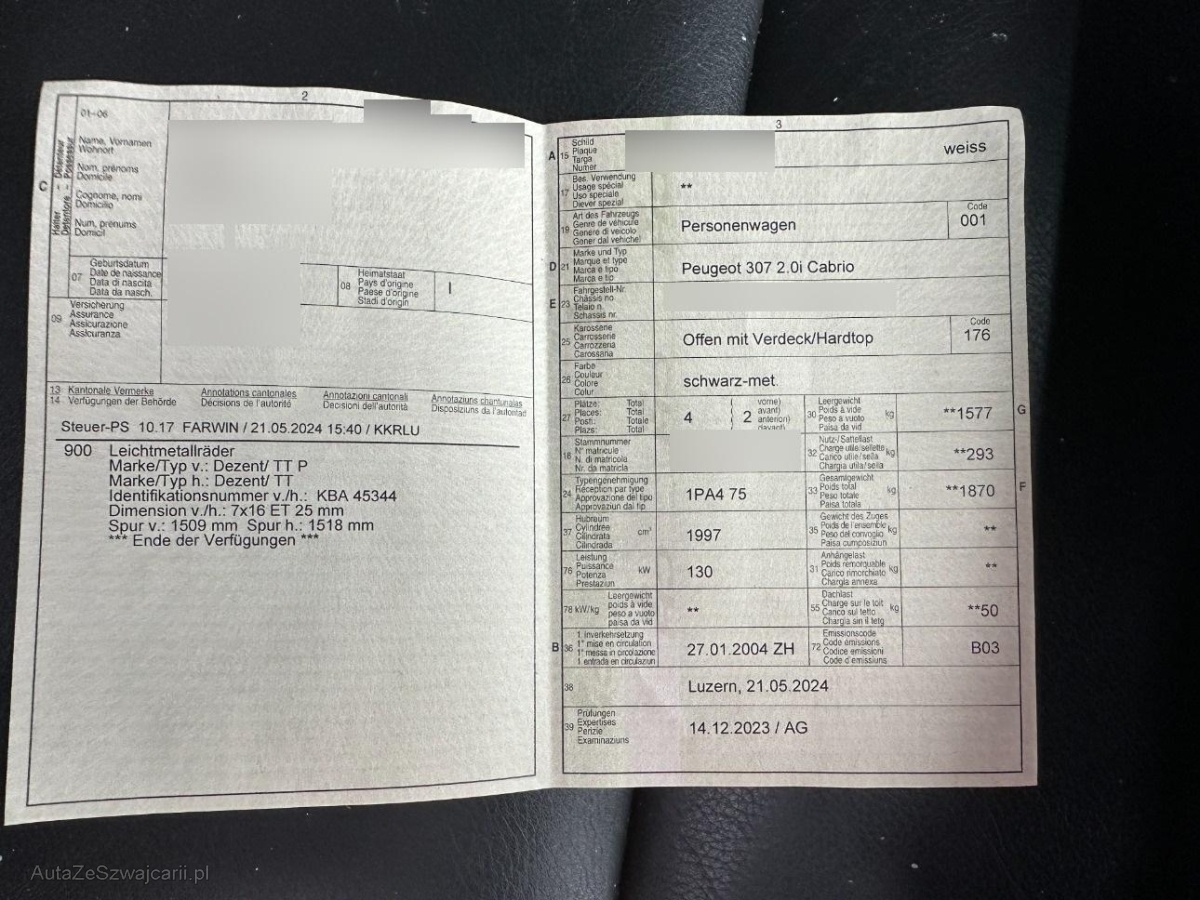 2
01-06
C
Halter - Détenteur
Detentore - Possessur
Name, Vornamen
Wohnort
Nom, prénoms
Domicile
Cognome, nomi
Domicilio
Num, prenums
Domicil
07
Geburtsdatum
Date de naissance
Data di nascita
Data da nasch.
08
Heimatstaat
Pays d'origine
Paese d'origine
Stadi d'origin
I
09
Versicherung
Assurance
Assicurazione
Assicuranza
13 Kantonale Vermerke Annotations cantonales Annotazioni cantonali Annotaziuns chantunalas
14 Verfügungen der Behörde Décisions de l'autorité Decisioni dell'autorità Disposiziuns da l'autoritad
Steuer-PS 10.17 FARWIN / 21.05.2024 15:40 / KKRLU
900 Leichtmetallräder
Marke/Typ v.: Dezent/ TT P
Marke/Typ h.: Dezent/ TT
Identifikationsnummer v./h.: KBA 45344
Dimension v./h.: 7x16 ET 25 mm
Spur v.: 1509 mm Spur h.: 1518 mm
*** Ende der Verfügungen ***
3
A 15
Schild
Plaque
Targa
Numer
weiss
17
Bes. Verwendung
Usage spécial
Uso speciale
Diever spezial
**
19
Art des Fahrzeugs
Genre de véhicule
Genere di veicolo
Gener dal vehichel
Personenwagen
Code
001
D 21
Marke und Typ
Marque et type
Marca e tipo
Marca e tip
Peugeot 307 2.0i Cabrio
E 23
Fahrgestell-Nr.
Châssis no
Telaio n.
Schassis nr.
25
Karosserie
Carrosserie
Carrozzeria
Carossaria
Offen mit Verdeck/Hardtop
Code
176
26
Farbe
Couleur
Colore
Colur
schwarz-met.
27
Plätze: Total
Places: Total
Posti: Totale
Plazs: Total
4
( 2
vorne)
avant)
anteriori)
davant)
30
Leergewicht
Poids à vide
Peso a vuoto
Paisa da vid
kg
**1577
G
18
Stammnummer
N° matricule
N. di matricola
Nr. da matricla
32
Nutz-/Sattellast
Charge utile/sellette
Carico utile/sella
Chargia utila/sella
kg
**293
24
Typengenehmigung
Réception par type
Approvazione del tipo
Approvaziun dal tip
1PA4 75
33
Gesamtgewicht
Poids total
Peso totale
Paisa totala
kg
**1870
F
37
Hubraum
Cylindrée
Cilindrata
Cilindrada
cm³
1997
35
Gewicht des Zuges
Poids de l'ensemble
Peso del convoglio
Paisa cumposiziun
kg
**
76
Leistung
Puissance
Potenza
Prestaziun
kW
130
31
Anhängelast
Poids remorquable
Carico rimorchiato
Chargia annexa
kg
**
78 kW/kg
Leergewicht
poids à vide
peso a vuoto
paisa da vid
**
55
Dachlast
Charge sur le toit
Carico sul tetto
Chargia sin il tetg
kg
**50
B 36
1. Inverkehrsetzung
1re mise en circulation
1a messa in circolazione
1. entrada en circulaziun
27.01.2004 ZH
72
Emissionscode
Code émissions
Codice emissioni
Code d'emissiuns
B03
38
Luzern, 21.05.2024
39
Prüfungen
Expertises
Perizie
Examinaziuns
14.12.2023 / AG
AutaZeSzwajcarii.pl